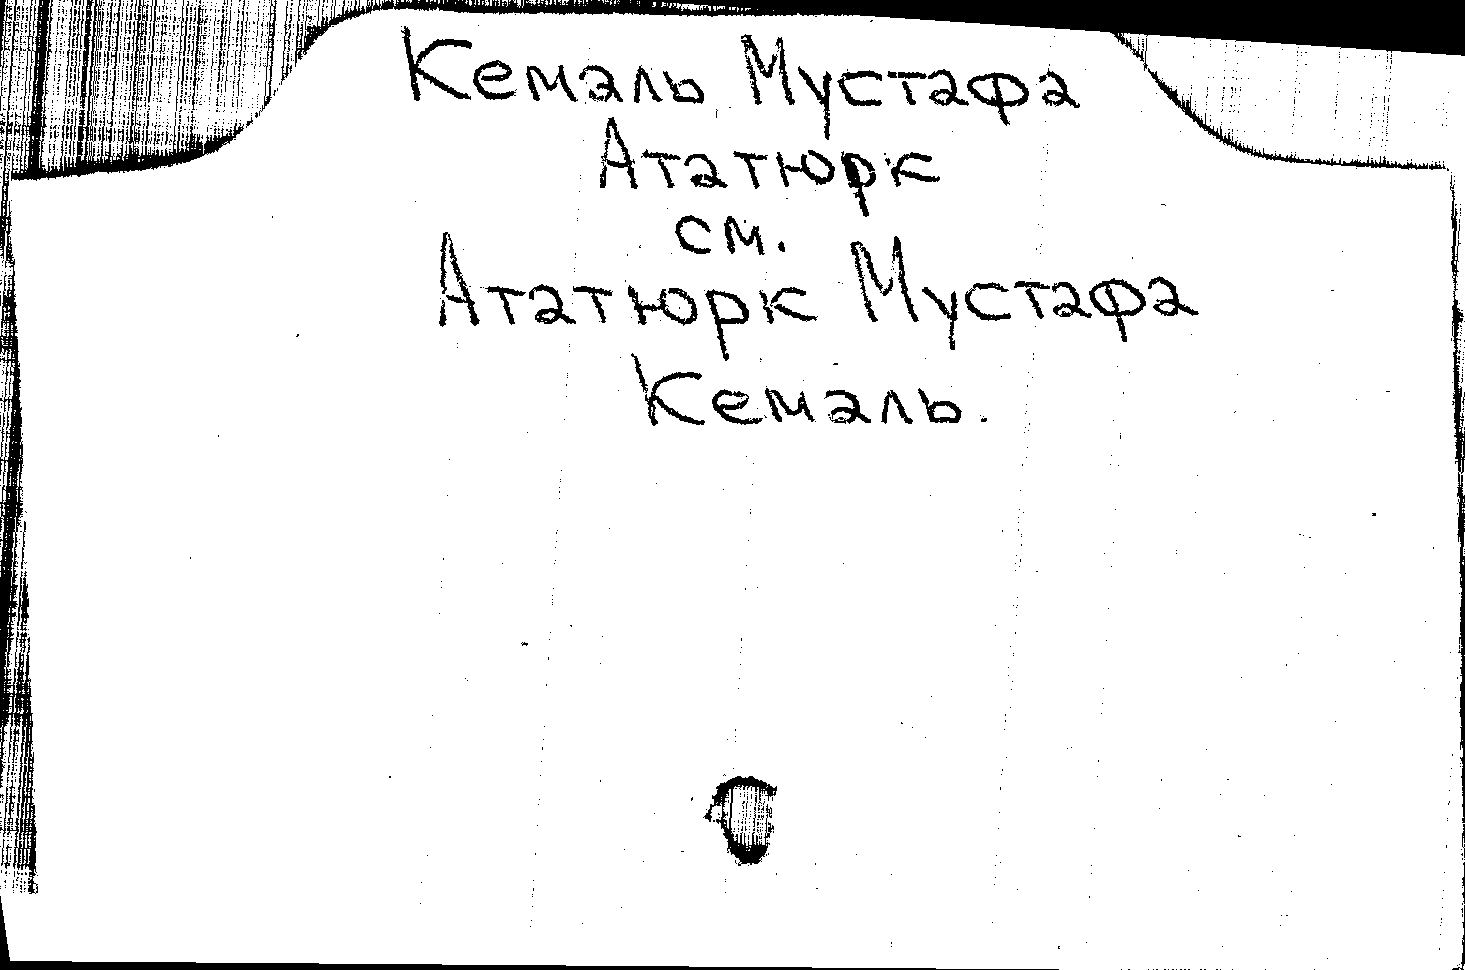 Кемаль Мустафа
Ататюрк
см.
Ататюрк Мустафа
Кемаль.